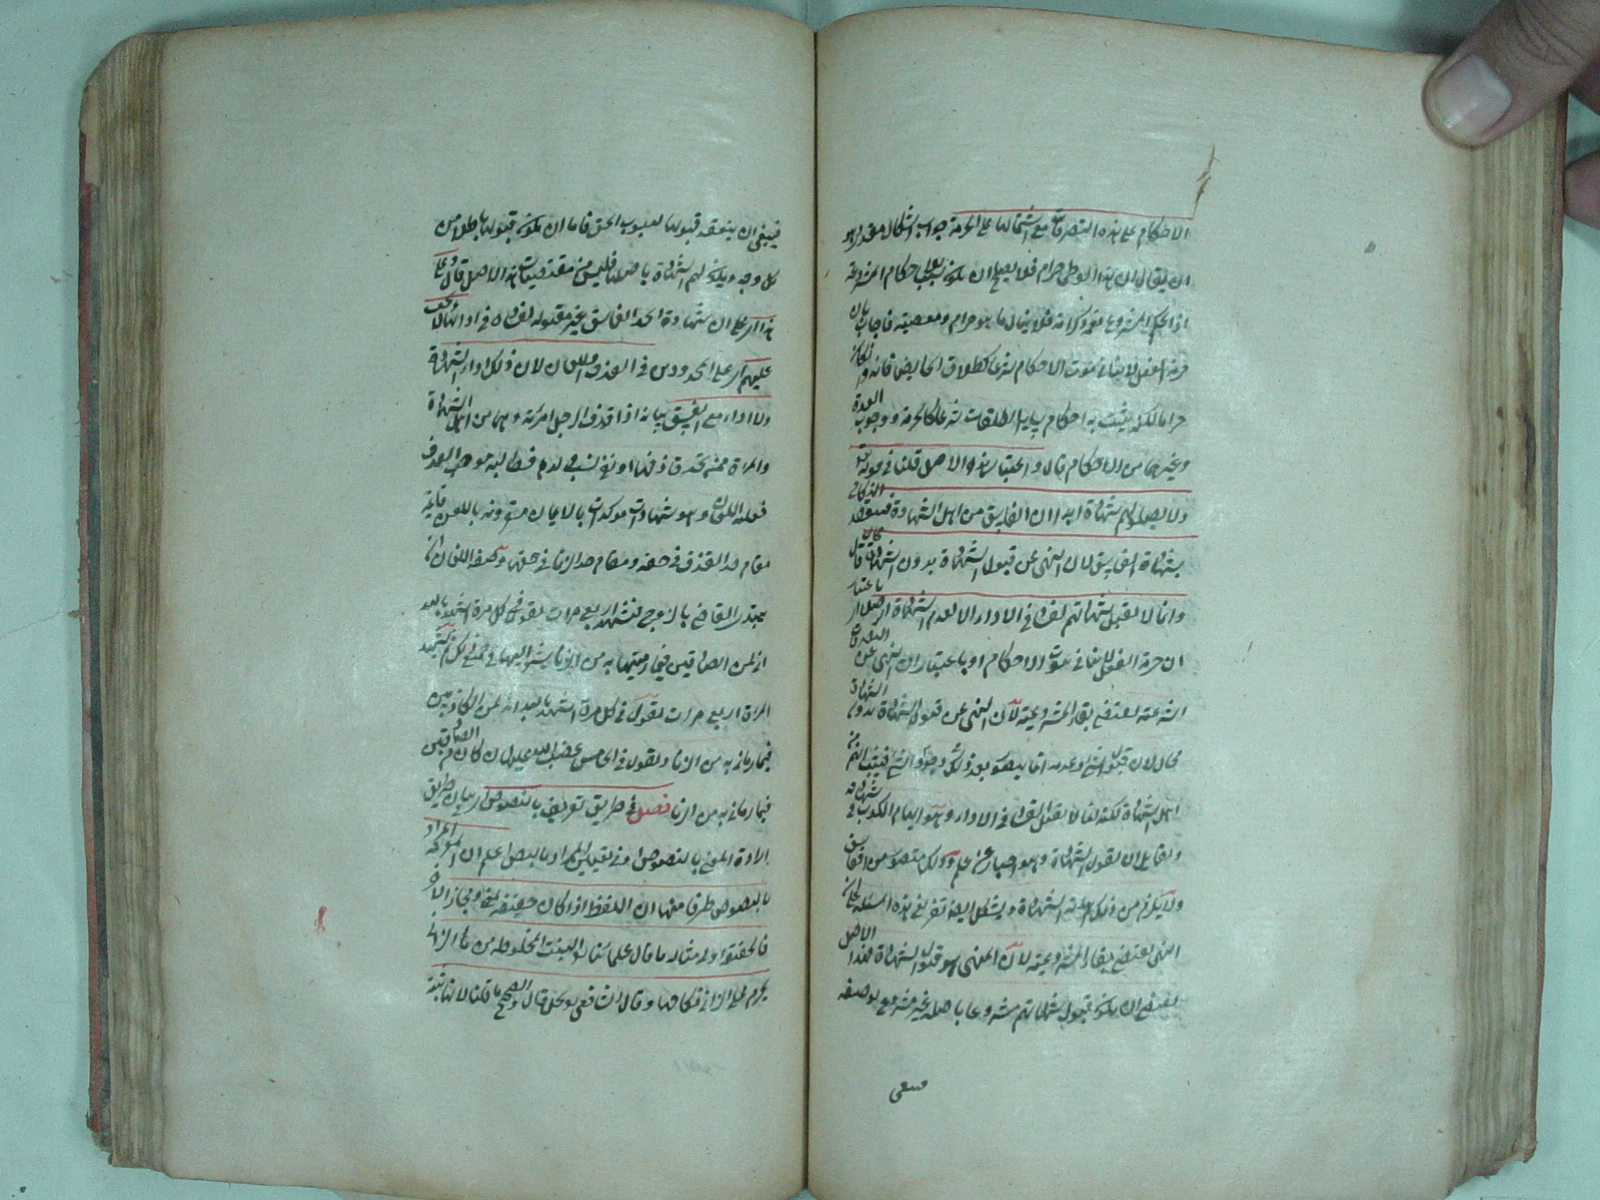 الاحكام على هذه التصرفات مع اشتمالها على الحرمة جواب اشكال مقدر وهو
ان يقال ان هذا الوطى حرام فلا يصلح ان يكون سببا لاحكام المشروعة
اذ الحكم المشروع نعمة وكرامة فلا ينال ما هو حرام ومعصية فاجاب بان
حرمة الفعل لا ينافي ثبوت الاحكام شرعا كطلاق الحايض فانه وان كان
حراما لكنه يثبت به احكام ساير الطلقات شرعا كالحرمة ووجوب العدة
وغيرها من الاحكام قال وباعتبار هذا الاصل قلنا في قوله تعالى
ولا تقبلوا لهم شهادة ابدا ان الفاسق من اهل الشهادة فينعقد النكاح
بشهادة الفاسق لان النهى عن قبول الشهادة بدون الشهادة محال
وانما لا تقبل شهادتهم لفساد في الاداء لا لعدم الشهادة اصلا اى باعتبار
ان حرمة الفعل لا ينافي ثبوت الاحكام او باعتبار ان النهى عن التصرفات
الشرعية يقتضى بقاء المشروعية لان النهى عن قبول الشهادة بدون الشهادة
محال لان قبول الشئ وعدمه انما يتصور بعد ذلك وجود الشئ فيثبت انهم من
اهل الشهادة لكنه انما لا يقبل لفساد في الاداء وهو ايهام الكذب في شهادته
ولقائل ان يقول الشهادة وهو اخبار عن علم وذلك متصور من الفاسق
ولا يلزم من ذلك اهلية الشهادة ويشكل ايضا تفريع هذه المسئلة على ان
النهى يقتضى بقاء المشروعية لان المنهى هو قبول الشهادة فهذا الاصل
يقتضى ان يكون قبول شهادتهم مشروعا باصله غير مشروع بوصفه
فينبغى
فينبغى ان ينعقد قبولها لصوب الحق فاما ان يكون قبولها باطلا من
كل وجه ويكون لهم الشهادة باصلها فليس من مقتضيات هذا الاصل قال وعلى
هذا اى على ان شهادة الفاسق غير مقبولة لفساد في ادائها لا يجب
عليهم اى على المحدودين في القذف اللعان لان ذلك اداء الشهادة
ولا اداء مع الفسق بيانه اذا قذف الرجل امرأته وهما من اهل الشهادة
والمراة ممن يحد قاذفها او نفى نسب ولدها فطالبته بموجب القذف
فعليه اللعان وهو شهادات موكدات بالايمان مقرونة باللعن قائمة
مقام حد القذف في حقه ومقام حد الزنا في حقها وصفة اللعان ان
يبتدئ القاضى بالزوج فتشهد اربع مرات يقول في كل مرة اشهد بالله
انى لمن الصادقين فيما رميتها به من الزنا يشير اليها في جميع ذلك ثم تشهد
المراة اربع مرات تقول في كل مرة اشهد بالله انه لمن الكاذبين
فيما رماني به من الزنا وتقول في الخامس غضب الله عليها ان كان من الصادقين
فيما رماني به من الزنا فصل في طريق تعريف بالنصوص اى بيان طريق
ارادة المعنى بالنصوص او في تعيين المراد بالنص اعلم ان لمعرفة المراد
بالنصوص طرقا منها ان اللفظ اذا كان حقيقة لمعنى ومجازا لاخر
فالحقيقة اولى مثاله ما قال علماؤنا البنت المخلوقة من ماء الزنا
يحرم على الزانى نكاحها وقال الشافعى يحل قال والصحيح ما قلنا لانها بنته